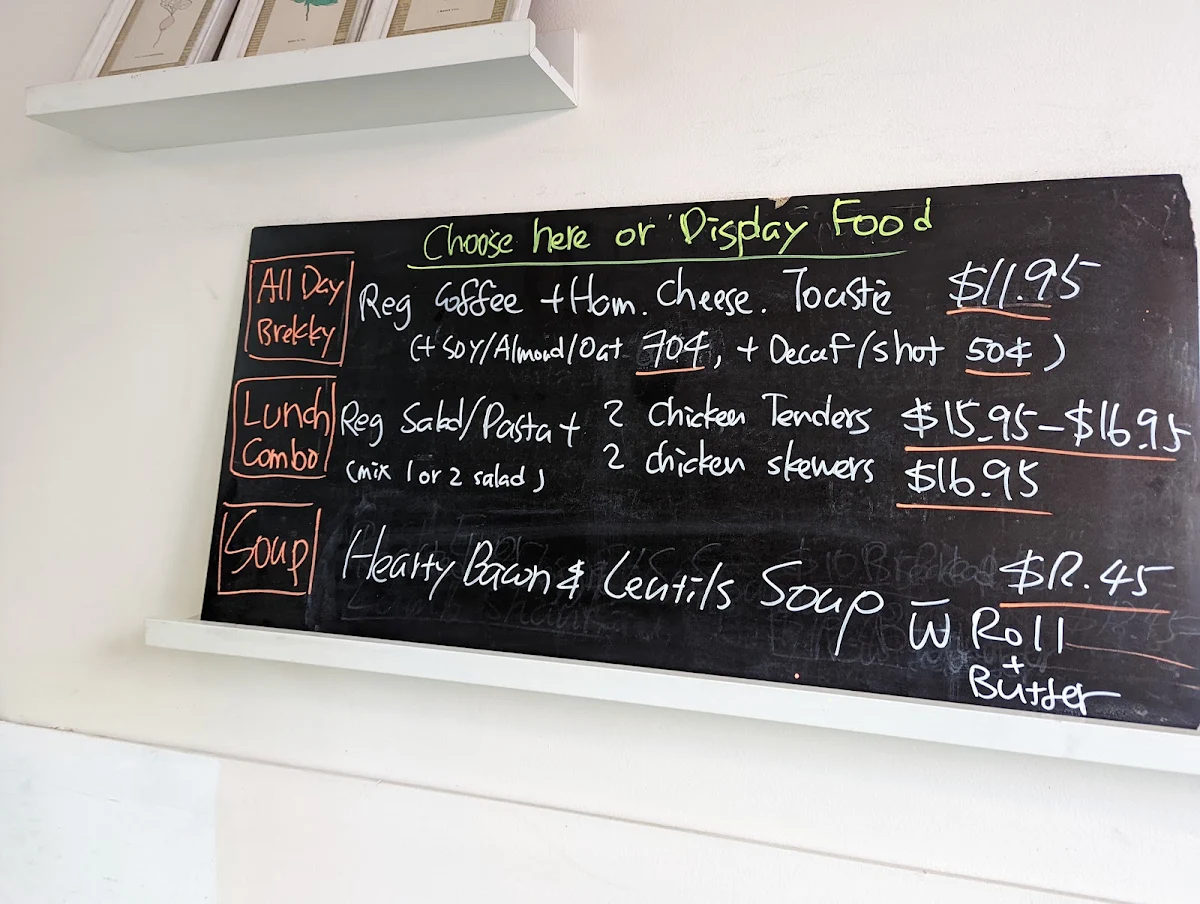 Choose here or Display Food
All Day
Brekky
Reg Coffee + Ham. Cheese. Toastie $11.95
(+ Soy/Almond/Oat 70¢, + Decaf/shot 50¢)
Lunch
Combo
Reg Salad/Pasta + 2 Chicken Tenders $15.95-$16.95
(mix 1 or 2 salad) 2 chicken skewers $16.95
Soup
Hearty Bacon & Lentils Soup $12.45
w̅ Roll
+
Butter